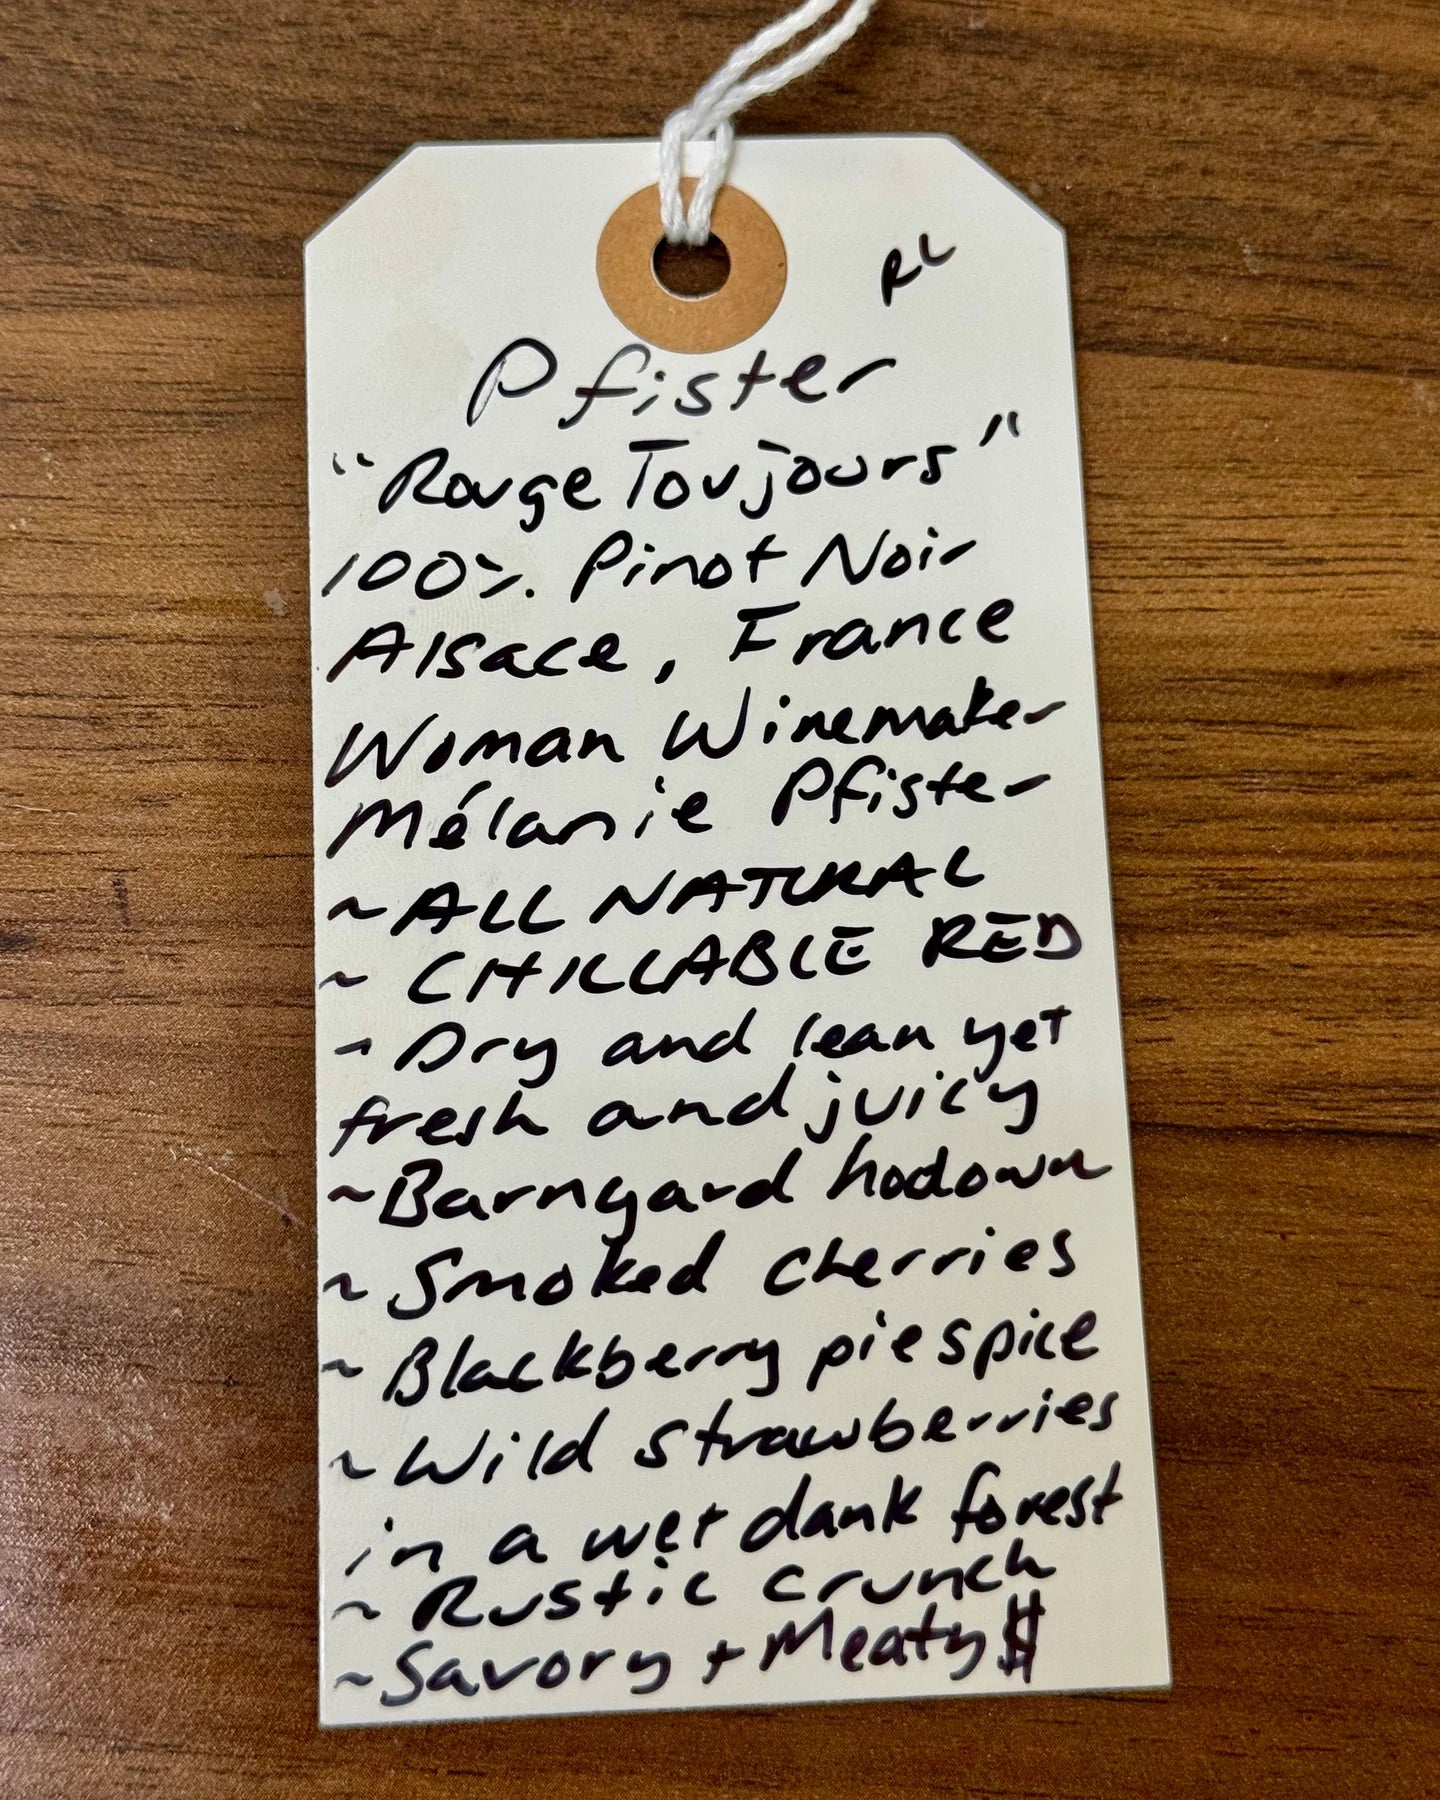 RL
Pfister
"Rouge Toujours"
100%. Pinot Noir
Alsace, France
Woman Winemaker
Mélanie Pfister
~ALL NATURAL
~ CHILLABLE RED
~ Dry and lean yet
fresh and juicy
~Barnyard hodown
~ Smoked cherries
~ Blackberry pie spice
~ Wild strawberries
in a wet dank forest
~ Rustic crunch
~Savory + Meaty